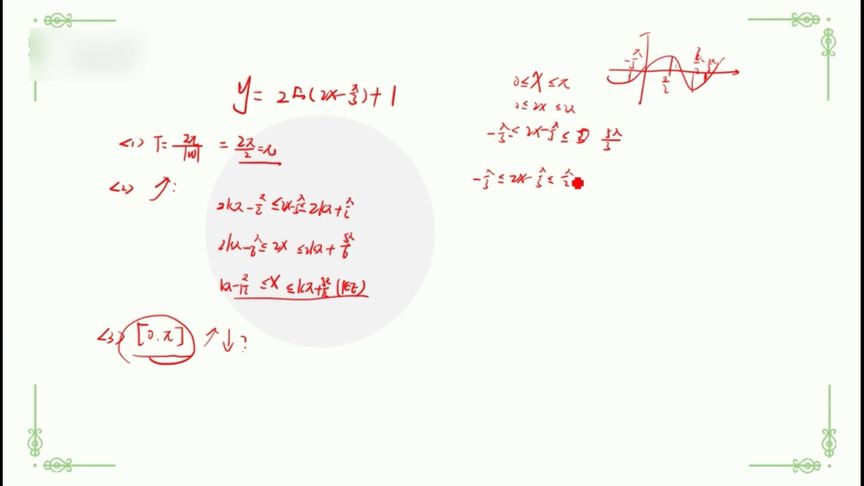 y = 2sin(2x-π/3)+1
<1> T = 2π/|ω| = 2π/2 = π
<2> ↗:
2kπ-π/2 ≤ 2x-π/3 ≤ 2kπ+π/2
2kπ-π/6 ≤ 2x ≤ 2kπ+5π/6
kπ-π/12 ≤ x ≤ kπ+5π/12 (k∈Z)
<3> [0.π] ↑↓?
0 ≤ X ≤ π
0 ≤ 2x ≤ 2π
-π/3 ≤ 2x-π/3 ≤ 5π/3
-π/3 ≤ 2x-π/3 ≤ π/2
-π/3
π/2